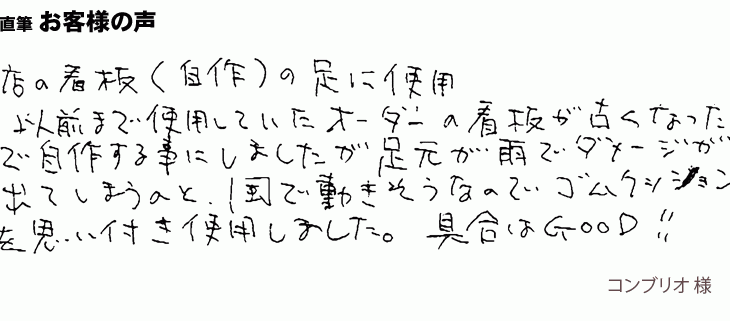 直筆 お客様の声
店の看板(自作)の足に使用
以前まで使用していたオーダーの看板が古くなった
で自作する事にしましたが足元が雨でダメージが
出てしまうのと、風で動きそうなのでゴムクッション
を思い付き使用しました。具合はGOOD!!
コンブリオ 様